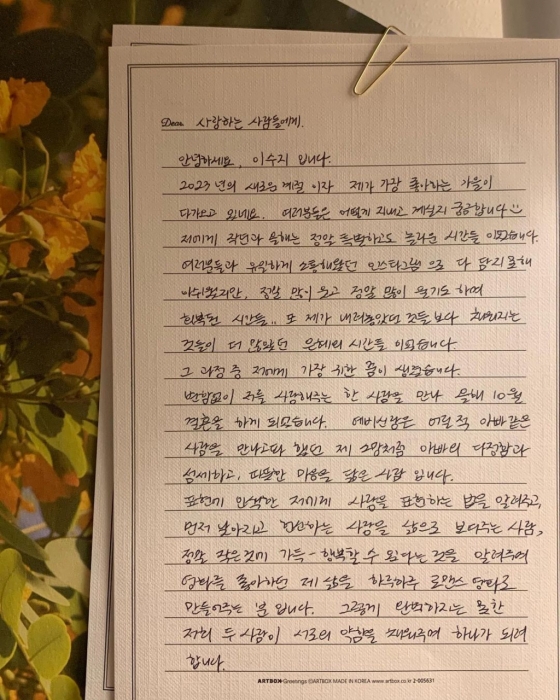 Dear. 사랑하는 사람들에게.
안녕하세요, 이수지 입니다.
2023 년의 새로운 계절 이자 제가 가장 좋아하는 가을이
다가오고 있네요. 여러분들은 어떻게 지내고 계실지 궁금합니다
저에게 작년과 올해는 정말 특별하고도 놀라운 시간들 이었습니다.
여러분들과 유일하게 소통해왔던 인스타그램 으로 다 담지 못해
아쉬웠지만, 정말 많이 웃고 정말 많이 울기도 하며
회복된 시간들.. 또 제가 내려놓았던 것들보다 채워지는
것들이 더 많았던 은혜의 시간들 이었습니다.
그 과정 중 저에게 가장 귀한 꿈이 생겼습니다.
변함없이 저를 사랑해주는 한 사람을 만나 올해 10월
결혼을 하게 되었습니다. 예비신랑은 어릴 적 아빠같은
사람을 만나고파 했던 제 소망처럼 아빠의 다정함과
섬세하고, 따뜻한 마음을 닮은 사람 입니다.
표현이 인색한 저에게 사랑을 표현하는 법을 알려주고,
먼저 낮아지고 헌신하는 사랑을 삶으로 보여주는 사람,
정말 작은것에 가득 - 행복할 수 있다는 것을 알려주며
영화를 좋아하던 제 삶을 하루하루 로맨스 영화로
만들어주는 분 입니다. 그렇게 완벽하지는 못한
저희 두 사람이 서로의 약함을 채워주며 하나가 되려
합니다.
ARTBOX Greetings ©ARTBOX MADE IN KOREA www.artbox.co.kr 2-005631